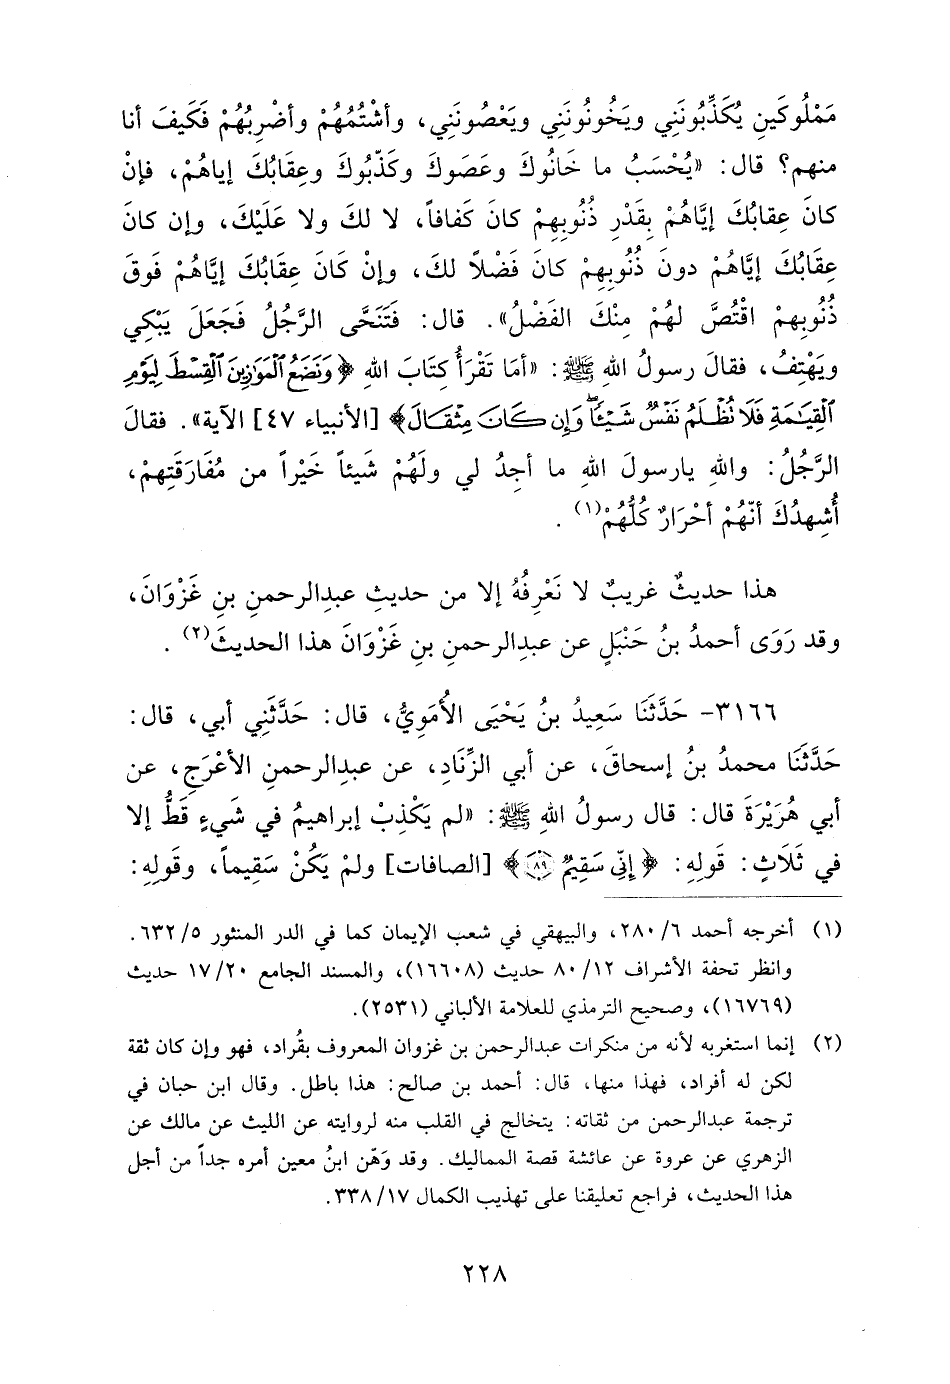 مَمْلُوكَينِ يُكَذِّبُونَنِي ويَخُونُونَنِي ويَعْصُونَنِي، وأشْتُمُهُمْ وأضْرِبُهُمْ فَكَيفَ أنا
منهم؟ قال: «يُحْسَبُ ما خَانُوكَ وعَصَوكَ وكَذّبُوكَ وعِقَابُكَ إياهُمْ، فإنْ
كانَ عِقابُكَ إيَّاهُمْ بِقَدْرِ ذُنُوبِهِمْ كانَ كَفافاً، لا لكَ ولا عَلَيْكَ، وإن كانَ
عِقَابُكَ إيَّاهُمْ دونَ ذُنُوبِهِمْ كانَ فَضْلاً لكَ، وإنْ كَانَ عِقَابُكَ إيَّاهُمْ فَوقَ
ذُنُوبِهمْ اقْتُصَّ لهُمْ مِنْكَ الفَضْلُ». قال: فَتَنَحَّى الرَّجُلُ فَجَعَلَ يَبْكِي
ويَهْتِفُ، فقالَ رسولُ اللهِ ﷺ: «أمَا تَقْرَأُ كِتَابَ اللهِ ﴿وَنَضَعُ ٱلْمَوَٰزِينَ ٱلْقِسْطَ لِيَوْمِ
ٱلْقِيَـٰمَةِ فَلَا تُظْلَمُ نَفْسٌ شَيْـًٔا ۖ وَإِن كَانَ مِثْقَالَ﴾ [الأنبياء ٤٧] الآية». فقالَ
الرَّجُلُ: واللهِ يارسولَ اللهِ ما أجدُ لي ولَهُمْ شَيئاً خَيْراً من مُفَارَقَتِهِمْ،
أُشهِدُكَ أنّهُمْ أحْرَارٌ كُلُّهُمْ(١).
هذا حديثٌ غريبٌ لا نَعْرِفُهُ إلا من حديثِ عبدِالرحمنِ بنِ غَزْوَانَ،
وقد رَوَى أحمدُ بنُ حَنْبَلٍ عن عبدِالرحمنِ بنِ غَزْوَانَ هذا الحديثَ(٢).
٣١٦٦- حَدَّثَنَا سَعِيدُ بنُ يَحْيَى الأُمَوِيُّ، قال: حَدَّثَنِي أبي، قال:
حَدَّثَنَا محمدُ بنُ إسحاقَ، عن أبي الزِّنَادِ، عن عبدِالرحمنِ الأعْرَجِ، عن
أبي هُرَيْرَةَ قال: قال رسولُ اللهِ ﷺ: «لم يَكْذِبْ إبراهيمُ في شَيءٍ قَطُّ إلا
في ثَلَاثٍ: قَولِهِ: ﴿إِنِّي سَقِيمٌ ٨٩﴾ [الصافات] ولمْ يَكُنْ سَقِيماً، وقَولِهِ:
(١) أخرجه أحمد ٦/٢٨٠، والبيهقي في شعب الإيمان كما في الدر المنثور ٥/٦٣٢.
وانظر تحفة الأشراف ١٢/٨٠ حديث (١٦٦٠٨)، والمسند الجامع ٢٠/١٧ حديث
(١٦٧٦٩)، وصحيح الترمذي للعلامة الألباني (٢٥٣١).
(٢) إنما استغربه لأنه من منكرات عبدالرحمن بن غزوان المعروف بقُراد، فهو وإن كان ثقة
لكن له أفراد، فهذا منها، قال: أحمد بن صالح: هذا باطل. وقال ابن حبان في
ترجمة عبدالرحمن من ثقاته: يتخالج في القلب منه لروايته عن الليث عن مالك عن
الزهري عن عروة عن عائشة قصة المماليك. وقد وَهّن ابنُ معين أمره جداً من أجل
هذا الحديث، فراجع تعليقنا على تهذيب الكمال ١٧/٣٣٨.
٢٢٨